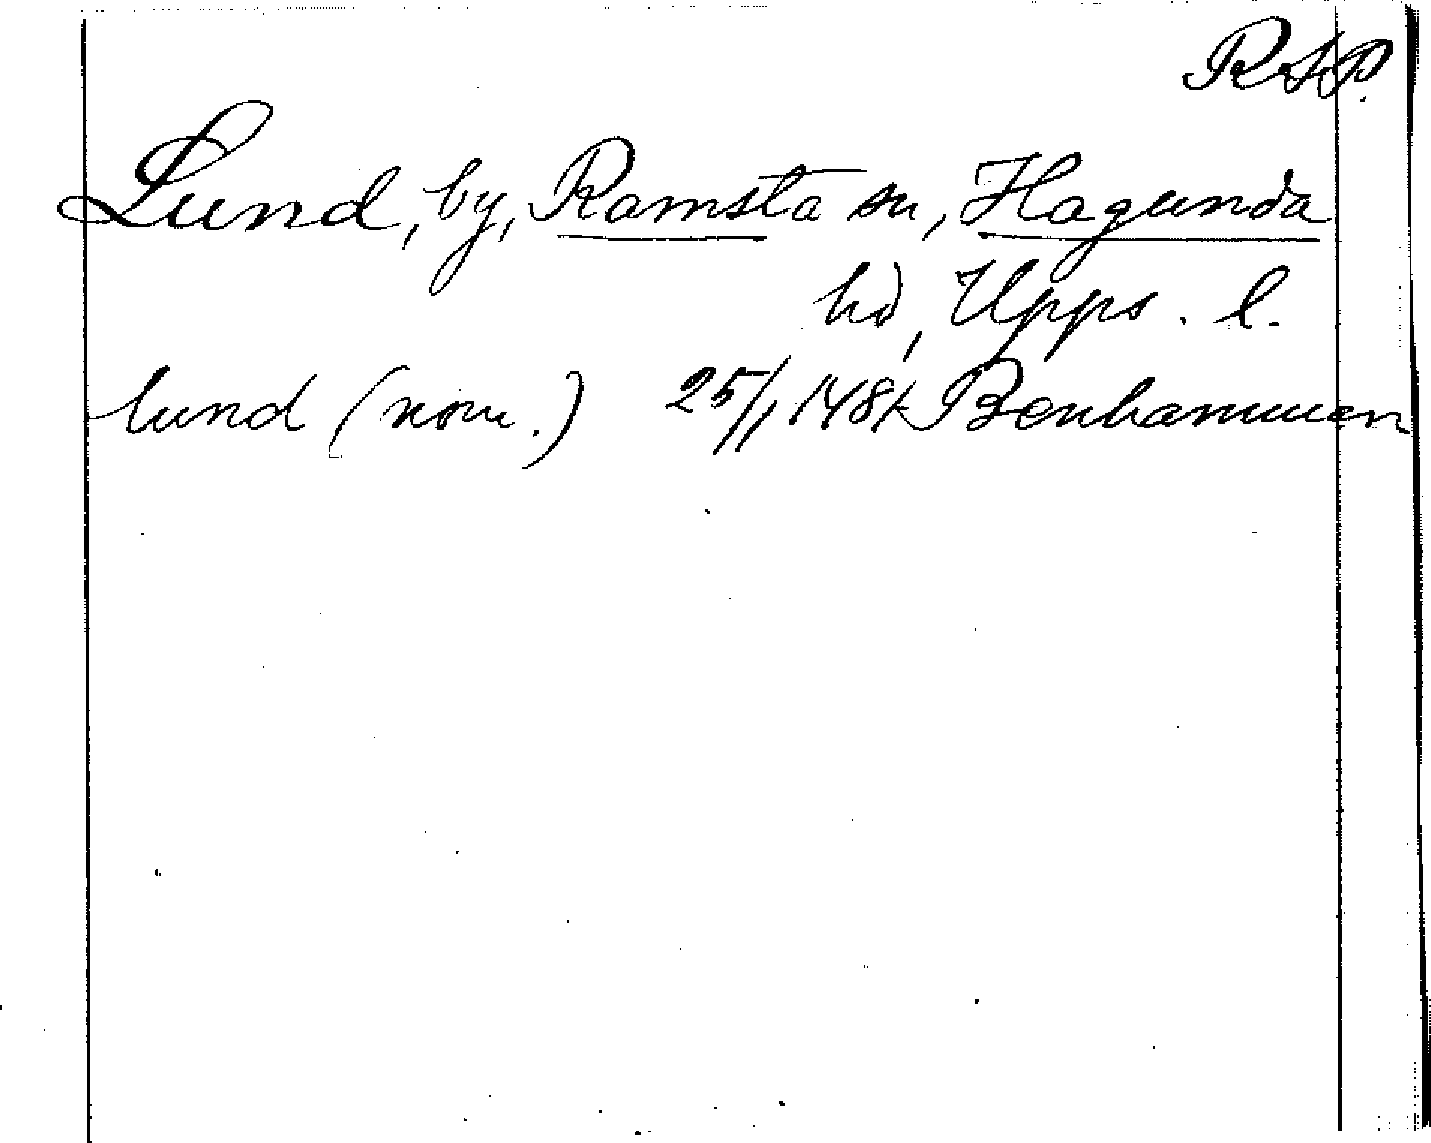 RAP.
Lund, by, Ramsta sn, Hagunda
hd, Upps. l.
lund (nom.) 25/11 1481 Benhammen